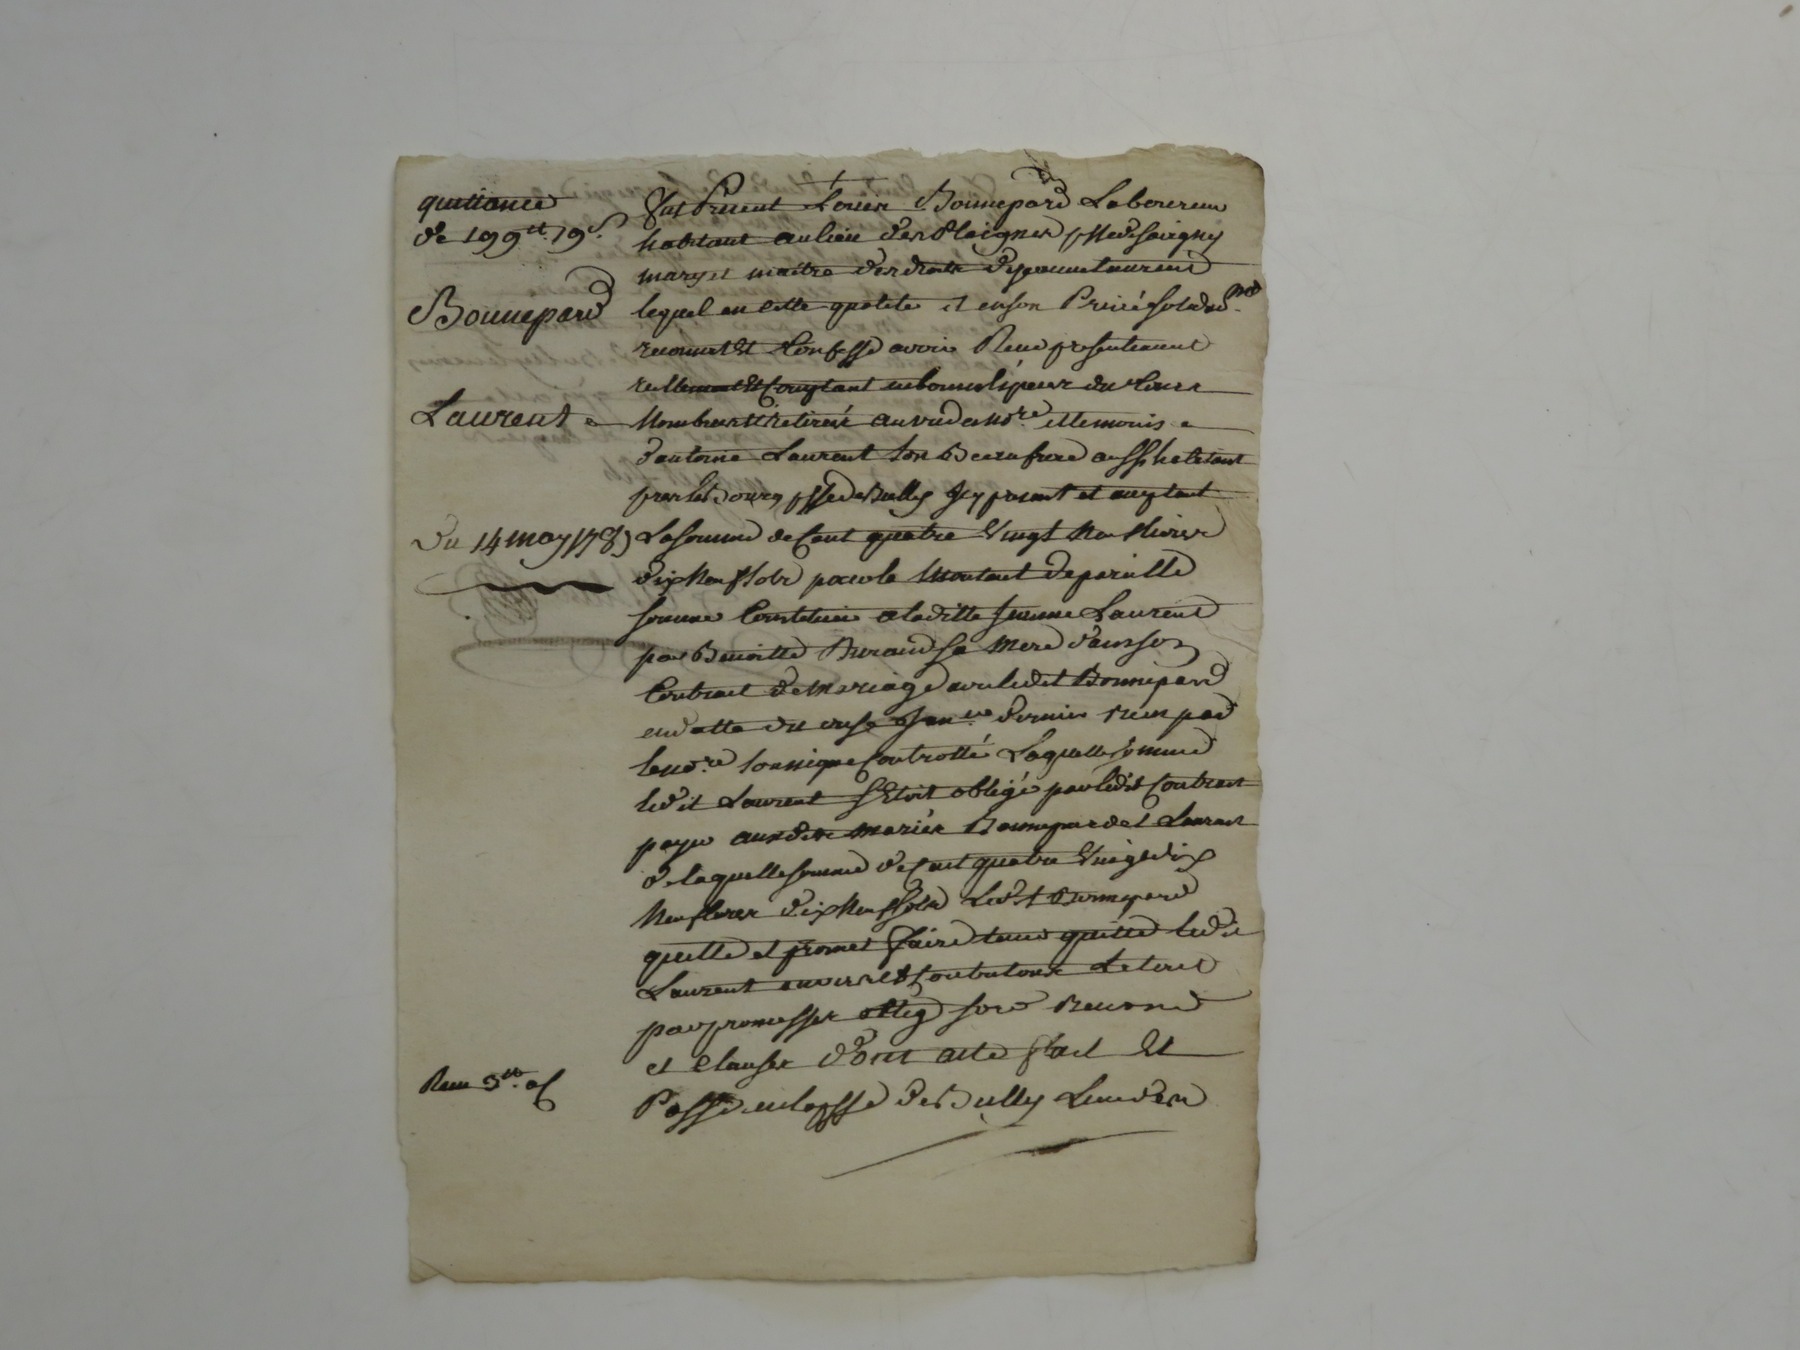 quittance
de 199tt 19s
Bonnepard
Laurent
Du 14 may 178
Recu 3tt
fut Present Louis Bonnepard Laboureur
habitant au lieu des Plaignes psse de Savigny
mary et maitre des droits de jeanne Laurent
lequel en cette qualité et en son Privé solidt
reconnait et Confesse avoir Recu presentement
réellement et Comptant en bonnes Espèces du Cours
Nombreés et retirés au vu du nore et temoins
d'antoine Laurent son Beau frere aussy habitant
pres le Bourg psse de Bully Icy present et acceptant
La somme de Cent quatre Vingt Livres
dix Neuf sols pour le Montant de pareille
somme Constituée a la ditte Jeanne Laurent
par Benoitte Durand sa Mere dans son
Contrat de Mariage avec ledit Bonnepard
en datte du onze Janer dernier recu par
le nore soussigné Controllé Laquelle somme
ledit Laurent s'Etoit obligé par ledit Contrat
payer aux dits mariés Bonnepard et Laurent
de laquelle somme de Cent quatre Vingt dix
Neuf livres dix Neuf sols Ledit Bonnepard
quitte et promet faire tenir quitte ledit
Laurent envers et Contre tous Le tout
par promesses oblig
et Clauses dont acte fait Et
Passé en la psse de Bully